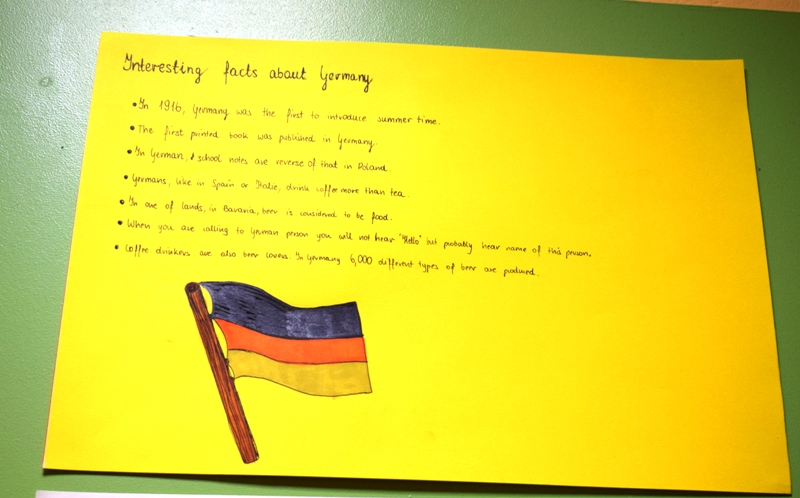 Interesting facts about Germany
• In 1916, Germany was the first to introduce summer time.
• The first printed book was published in Germany.
• In German, school notes are reverse of that in Poland
• Germans, like in Spain or Italie, drink coffer more than tea.
• In one of lands, in Bavaria, beer is considered to be food.
• When you are calling to German person you will not hear "Hello" but probably hear name of this person.
• Coffee drinkers are also beer lovers. In Germany 6,000 different types of beer are produced.